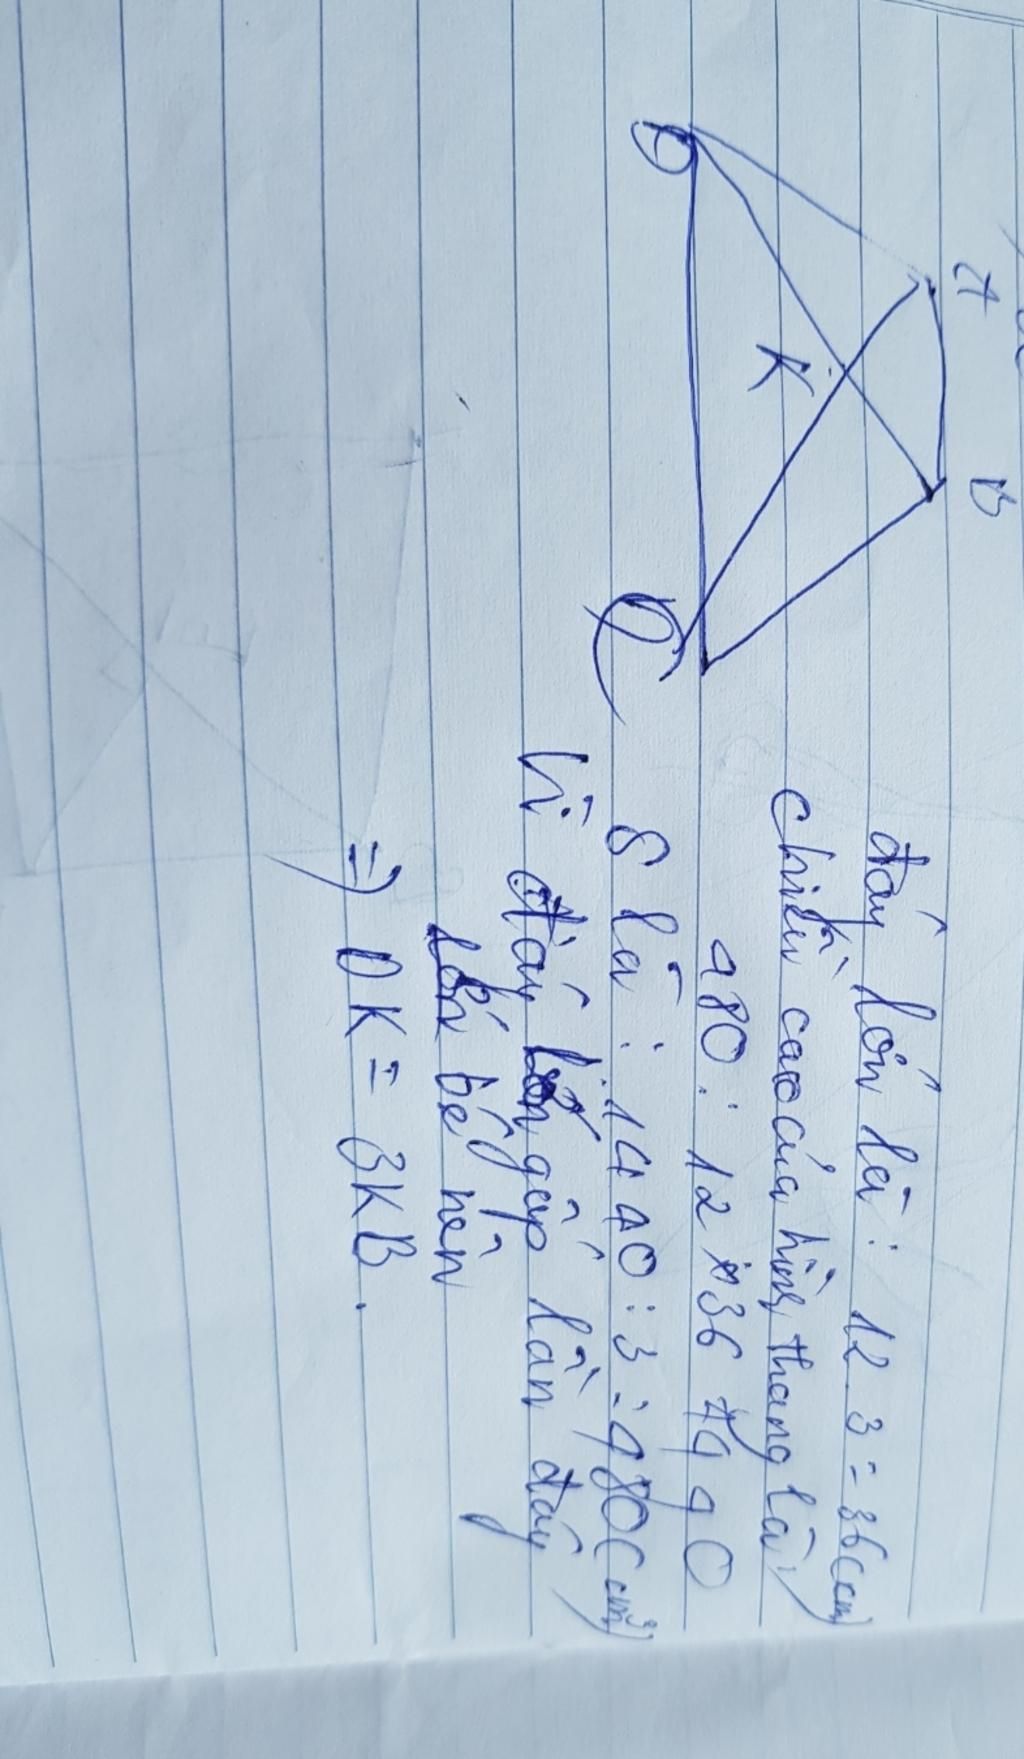 A
B
K
D
C
đáy lớn là: 12.3=36(cm)
chiều cao của hình thang là:
480:12 × 36 1440
S là: 1440:3=480(cm²)
Vì đáy lớn gấp lần đáy
bé nên
=) DK = 3KB.